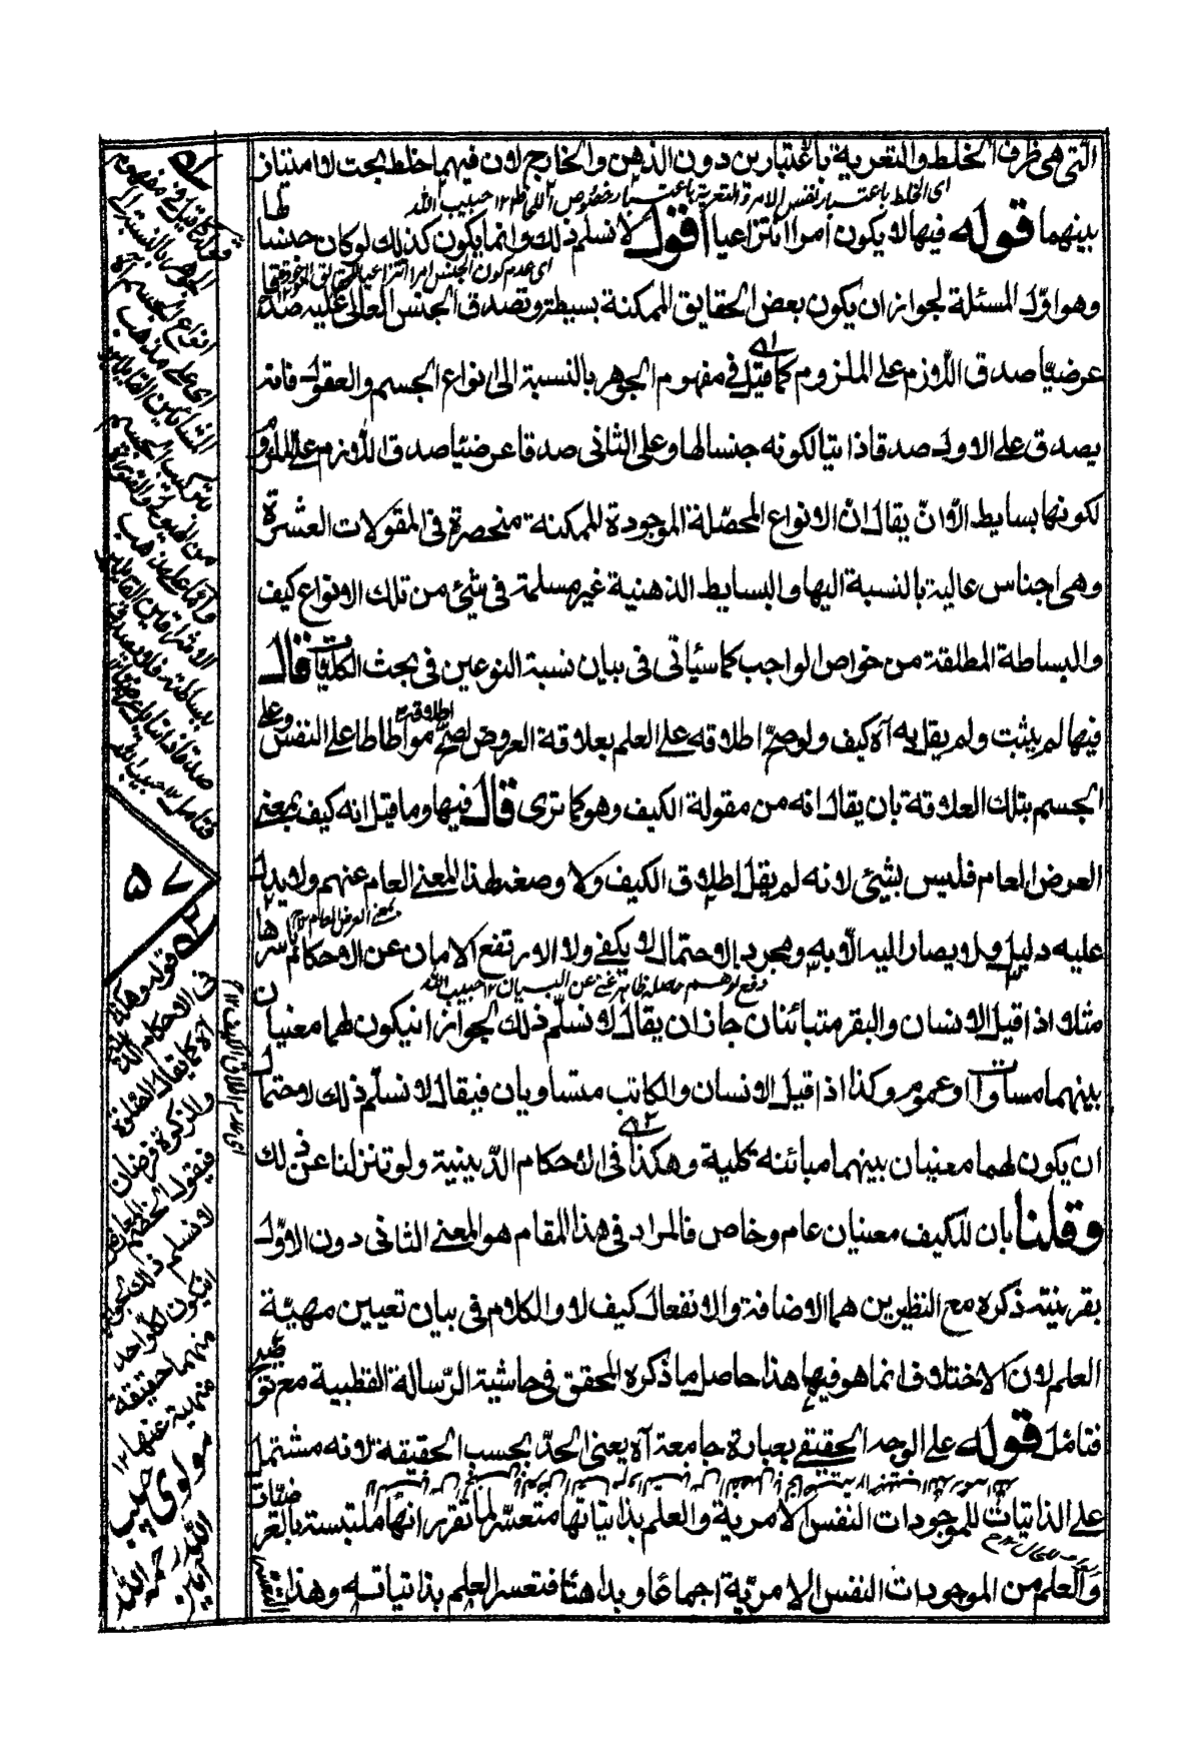 التى هى ظرف الخلط والتعرية باعتبارين دون الذهن والخارج لان فيهما خلط بحت لا امتياز
اى الخلط باعتبار نفس الامر والتعرية باعتبار خصوص اللحاظ ١٢ حبيب الله
بينهما قوله فيها لا يكون امرا انتزاعيا اقول لا نسلم ذلك وانما يكون كذلك لو كان جنسا لها
اى عدم كون الجنس امرا انتزاعيا
وهو اول المسئلة لجواز ان يكون بعض الحقايق الممكنة بسيطة وتصدق الجنس العالى عليه صدقا
عرضيا صدق اللازم على الملزوم كما قيل فى مفهوم الجوهر بالنسبة الى انواع الجسم والعقول فانه
يصدق على الاول صدقا ذاتيا لكونه جنسا لها وعلى الثانى صدقا عرضيا صدق اللازم على الملزوم
لكونها بسايط الا ان يقال ان الانواع المحصلة الموجودة الممكنة منحصرة فى المقولات العشرة
وهى اجناس عالية بالنسبة اليها والبسايط الذهنية غير مسلمة فى شئ من تلك الانواع كيف
والبساطة المطلقة من خواص الواجب كما سيأتى فى بيان نسبة النوعين فى بحث الكليات قال
فيها لم يثبت ولم يقل به آه كيف ولو صح اطلاقه على العلم بعلاقة العروض لصح اطلاقه مواطاطا على النفس وعلى
الجسم بتلك العلاقة بان يقال انه من مقولة الكيف وهو كما ترى قال فيها وما قيل انه كيف بمعنى
العرض العام فليس بشئ لانه لم يقل اطلاق الكيف ولا وضعه لهذا المعنى العام عنهم ولا يدل
بمعنى العرض العام ١٢
عليه دليل ولا يصار اليه الا به ومجرد الاحتمال لا يكفى والا لارتفع الامان عن الاحكام باسرها
دفع توهم حاصله ظاهر غنى عن البيان ١٢ حبيب الله
مثلا اذا قيل الانسان والبقر متبائنان جاز ان يقال لا نسلم ذلك لجواز ان يكون لهما معنيان
بينهما مساواة او عموم وكذا اذا قيل الانسان والكاتب متساويان فيقال لا نسلم ذلك لاحتمال
ان يكون لهما معنيان بينهما مبائنه كلية وهكذا فى الاحكام الدينية ولو تنزلنا عن ذلك
وقلنا بان للكيف معنيان عام وخاص فالمراد فى هذا المقام هو المعنى الثانى دون الاول
بقرينة ذكره مع النظيرين هما الاضافة والانفعال كيف لا والكلام فى بيان تعيين مهيّة
العلم لان الاختلاف انما هو فيها هذا حاصل ما ذكره المحقق فى حاشية الرسالة القطبية مع توضيح
فتامل قوله على الوجه الحقيقى بعبارة جامعة آه يعنى الحد بحسب الحقيقة لانه مشتمل
على الذاتيات للموجودات النفس الامرية والعلم بذاتياتها متعسر لما تقرر انها ملتبسة بالعرضيات
والعلم من الموجودات النفس الامرية اجماعا وبداهتا فتعسر العلم بذاتياته وهذا
٥١
قوله كما قيل فى مفهوم
الجوهر بالنسبة الى
انواع الجسم آه
اى على مذهب
المشائين القايلين
بتركيب الجسم
من الهيولى والصورة
واما على مذهب
الاشراقيين القايلين
ببساطته فلا يصدق
صدقا ذاتيا بل عرضيا
فتامل ١٢ حبيب الله
٥٧
٥٢
قوله وهكذا
فى الاحكام الدينية
آه كما يقال الصلوة
والزكوة فرضان
فيقول الخصم
لا نسلم ذلك لجواز
ان يكون لكل واحد
منهما حقيقة
منهية عنها ١٢
مولوى حبيب
الله
رحمه الله
اى عدم اطلاق الكيف ١٢ م